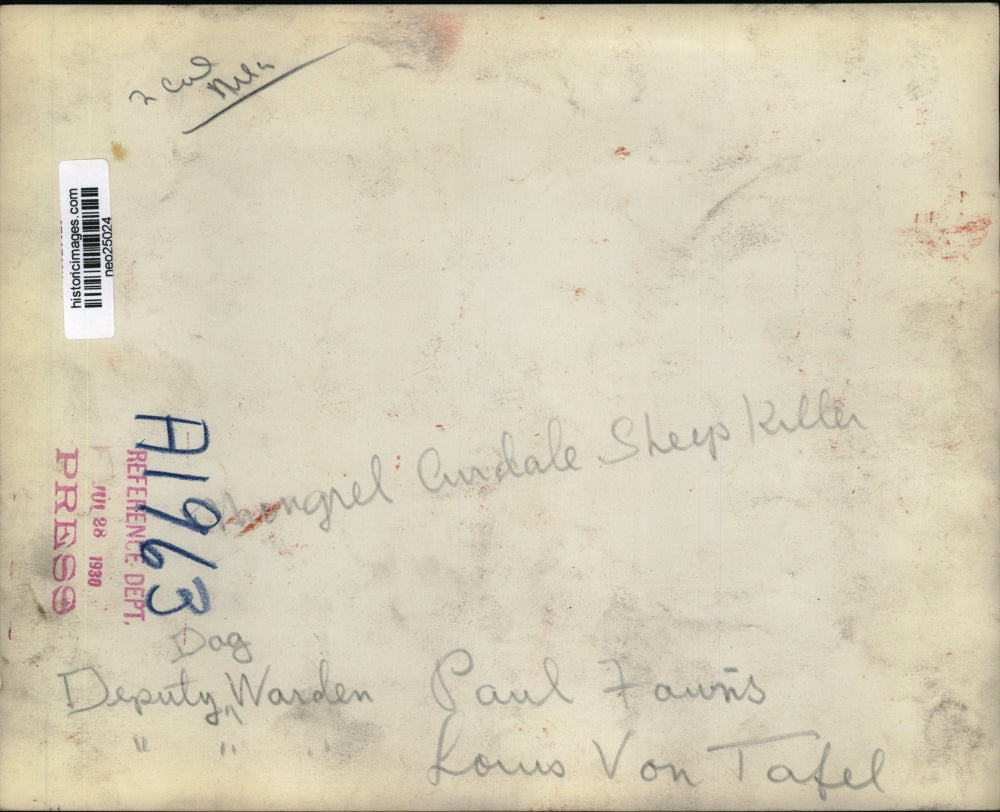 2 Col
historicimages.com
neo25024
A1963
REFERENCE DEPT.
1930
PRESS
Mongrel Airdale Sheep Killer
Dog
Deputy Warden Paul
" " " Louis Von Tafel